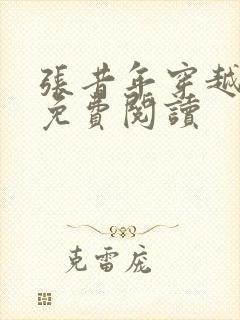 張昔年穿越
免費閱讀
克雷龐